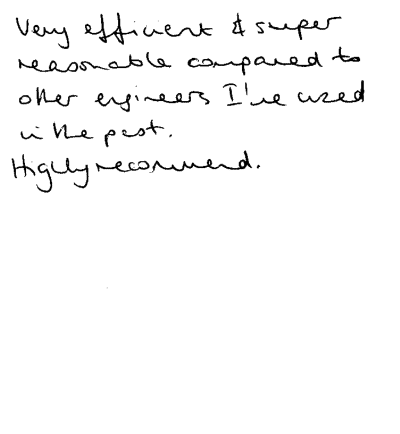 Very efficient & super
reasonable compared to
other engineers I've used
in the past.
Highly recommend.